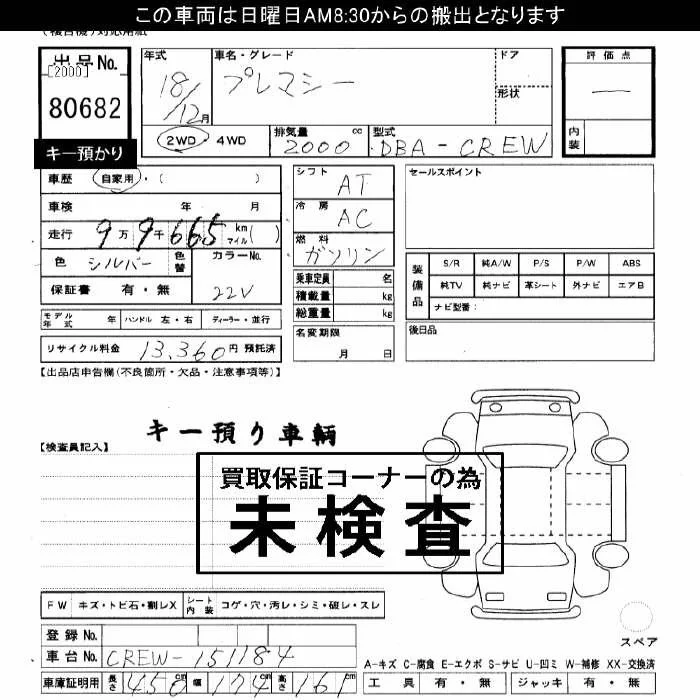 この車両は日曜日AM8:30からの搬出となります
出品No.
[2000]
80682
キー預かり
年式
18/12月
車名・グレード
プレマシー
ドア
形状
評価点
―
内装
2WD・4WD
排気量 2000 cc
型式 DBA-CREW
車歴 自家用・( )
車検 年 月
走行 9万9千665 km マイル( )
色 シルバー 色替
カラーNo. 22V
保証書 有・無
モデル年式 年 ハンドル 左・右 ディーラー・並行
リサイクル料金 13,360円 預託済
シフト AT
冷房 AC
燃料 ガソリン
乗車定員 名
積載量 kg
総重量 kg
名変期限 月 日
セールスポイント
装備品
S/R 純A/W P/S P/W ABS
純TV 純ナビ 革シート 外ナビ エアB
ナビ型番:
後日品
【出品店申告欄(不良箇所・欠品・注意事項等)】
キー預り車輌
【検査員記入】
買取保証コーナーの為
未検査
FW キズ・トビ石・割レX シート内装 コゲ・穴・汚レ・シミ・破レ・スレ
登録No.
車台No. CREW-151184
車庫証明用 長さ 450cm 幅 174cm 高さ 161cm
スペア
A-キズ C-腐食 E-エクボ S-サビ U-凹ミ W-補修 XX-交換済
工具 有・無 ジャッキ 有・無